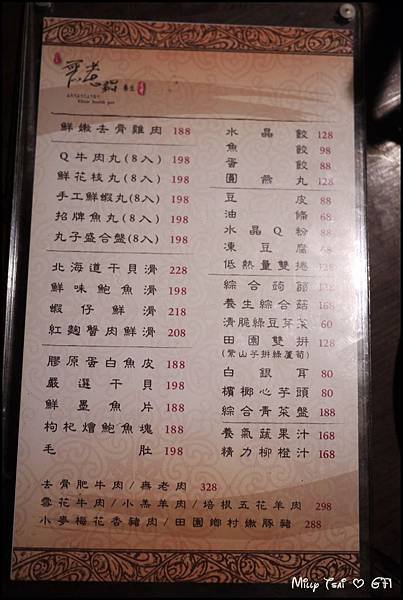 養生
Elixir health pot
鮮嫩去骨雞肉 188
Q牛肉丸(8入) 198
鮮花枝丸(8入) 198
手工鮮蝦丸(8入) 198
招牌魚丸(8入) 198
丸子盛合盤(8入) 198
北海道干貝滑 228
鮮味鮑魚滑 198
蝦仔鮮滑 218
紅麴蟹肉鮮滑 208
膠原蛋白魚皮 188
嚴選干貝 198
鮮墨魚片 188
枸杞燴鮑魚塊 188
毛肚 198
水晶餃 128
魚餃 98
蛋餃 88
圓燕丸 128
豆皮 88
油條 68
水晶Q粉 88
凍豆腐 68
低熱量雙捲 128
綜合蒟蒻 128
養生綜合菇 168
清脆綠豆芽菜 60
田園雙拼 128
(紫山子拼綠蘆筍)
白銀耳 80
檳榔心芋頭 80
綜合青菜盤 188
養氣蔬果汁 168
精力柳橙汁 168
去骨肥牛肉/無老肉 328
雪花牛肉/小羔羊肉/培根五花羊肉 298
小麥梅花香豬肉/田園鄉村嫩豚豬 288
Milly Tsai ♡ GFI